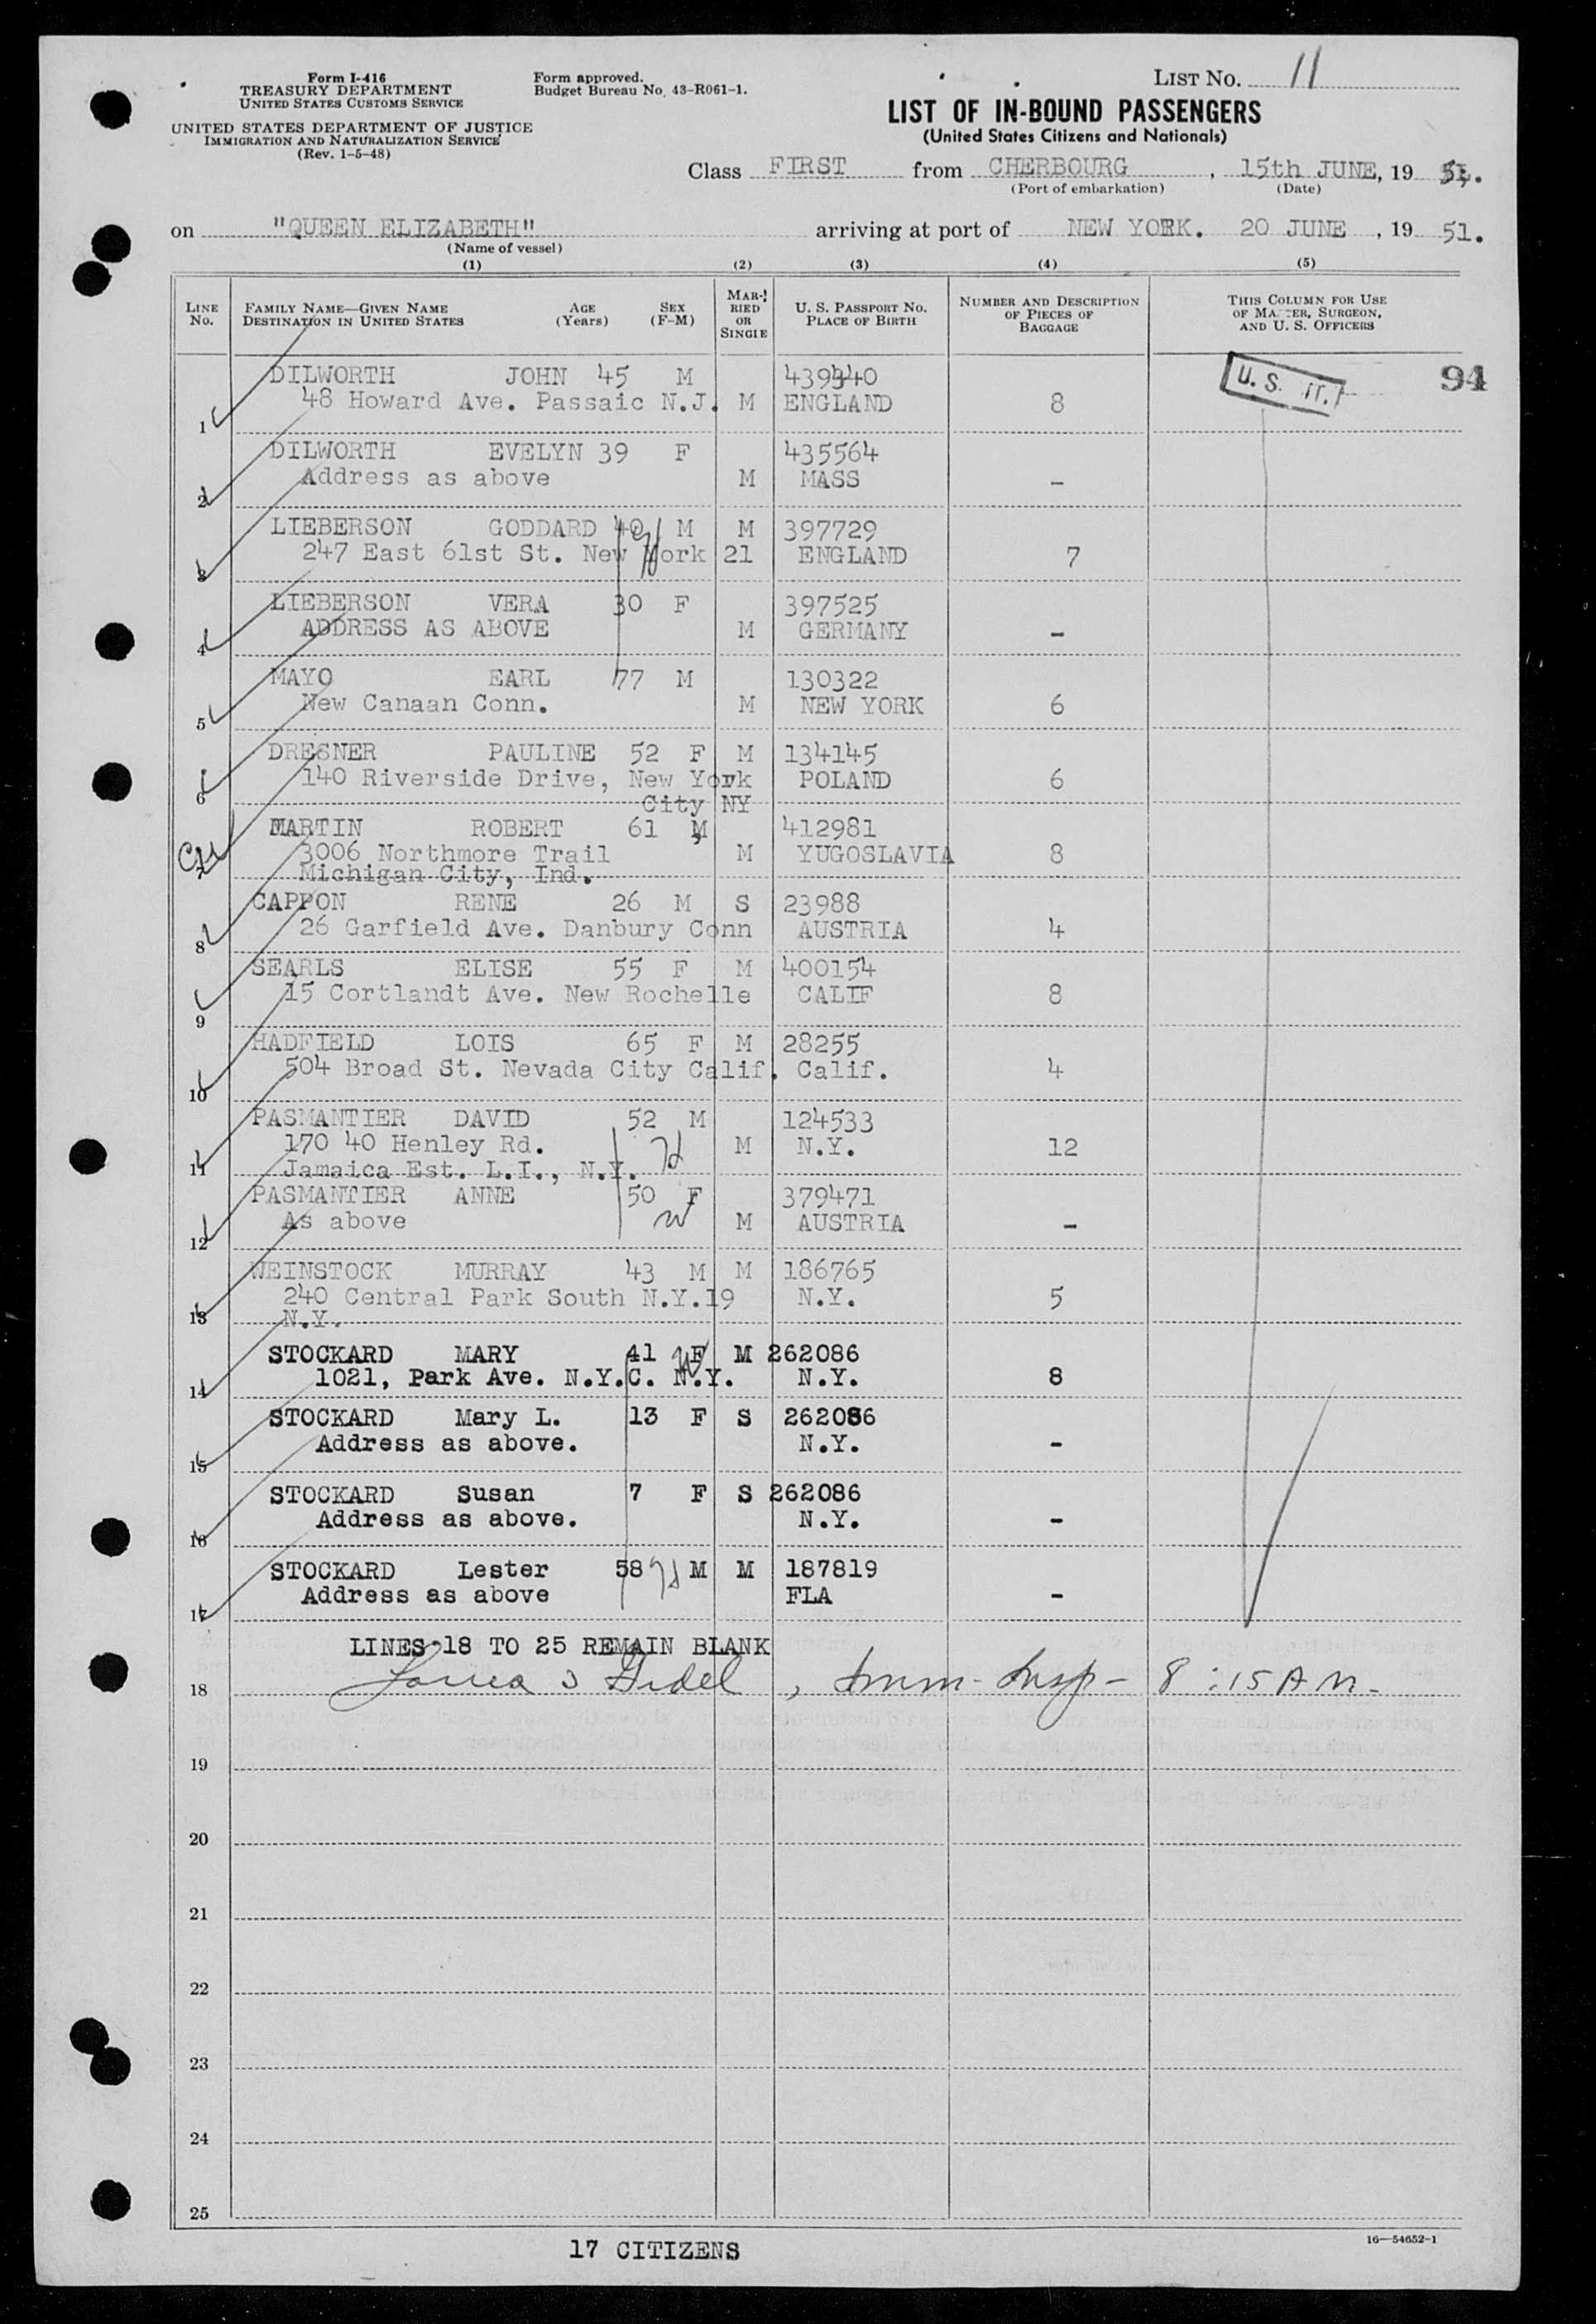 Form I-416
TREASURY DEPARTMENT
UNITED STATES CUSTOMS SERVICE
UNITED STATES DEPARTMENT OF JUSTICE
IMMIGRATION AND NATURALIZATION SERVICE
(Rev. 1-5-48)
Form approved.
Budget Bureau No. 43-R061-1.
LIST NO. 11
LIST OF IN-BOUND PASSENGERS
(United States Citizens and Nationals)
Class FIRST from CHERBOURG, 15th JUNE, 19 51.
(Port of embarkation) (Date)
on "QUEEN ELIZABETH" arriving at port of NEW YORK. 20 JUNE, 19 51.
(Name of vessel)
(1) (2) (3) (4) (5)
LINE NO.
FAMILY NAME—GIVEN NAME AGE SEX
DESTINATION IN UNITED STATES (Years) (F-M)
MARRIED OR SINGLE
U. S. PASSPORT NO.
PLACE OF BIRTH
NUMBER AND DESCRIPTION OF PIECES OF BAGGAGE
THIS COLUMN FOR USE OF MASTER, SURGEON, AND U. S. OFFICERS
U. S. 94
DILWORTH JOHN 45 M 439340
1 48 Howard Ave. Passaic N.J. M ENGLAND 8
DILWORTH EVELYN 39 F 435564
2 Address as above M MASS -
LIEBERSON GODDARD 40 M M 397729
3 247 East 61st St. New York 21 ENGLAND 7
LIEBERSON VERA 30 F 397525
4 ADDRESS AS ABOVE M GERMANY -
MAYO EARL 77 M 130322
5 New Canaan Conn. M NEW YORK 6
DRESNER PAULINE 52 F M 134145
6 140 Riverside Drive, New York POLAND 6
City NY
MARTIN ROBERT 61 M 412981
7 3006 Northmore Trail M YUGOSLAVIA 8
Michigan City, Ind.
CAPPON RENE 26 M S 23988
8 26 Garfield Ave. Danbury Conn AUSTRIA 4
SEARLS ELISE 55 F M 400154
9 15 Cortlandt Ave. New Rochelle CALIF 8
HADFIELD LOIS 65 F M 28255
10 504 Broad St. Nevada City Calif. Calif. 4
PASMANTIER DAVID 52 M 124533
11 170 40 Henley Rd. M N.Y. 12
Jamaica Est. L.I., N.Y.
PASMANTIER ANNE 50 F 379471
12 As above M AUSTRIA -
WEINSTOCK MURRAY 43 M M 186765
13 240 Central Park South N.Y.19 N.Y. 5
N.Y.
STOCKARD MARY 41 F M 262086
14 1021, Park Ave. N.Y.C. N.Y. N.Y. 8
STOCKARD Mary L. 13 F S 262086
15 Address as above. N.Y. -
STOCKARD Susan 7 F S 262086
16 Address as above. N.Y. -
STOCKARD Lester 58 M M 187819
17 Address as above FLA -
LINES 18 TO 25 REMAIN BLANK
18 , Imm- Insp- 8:15 AM-
19
20
21
22
23
24
25
17 CITIZENS
16—54652-1